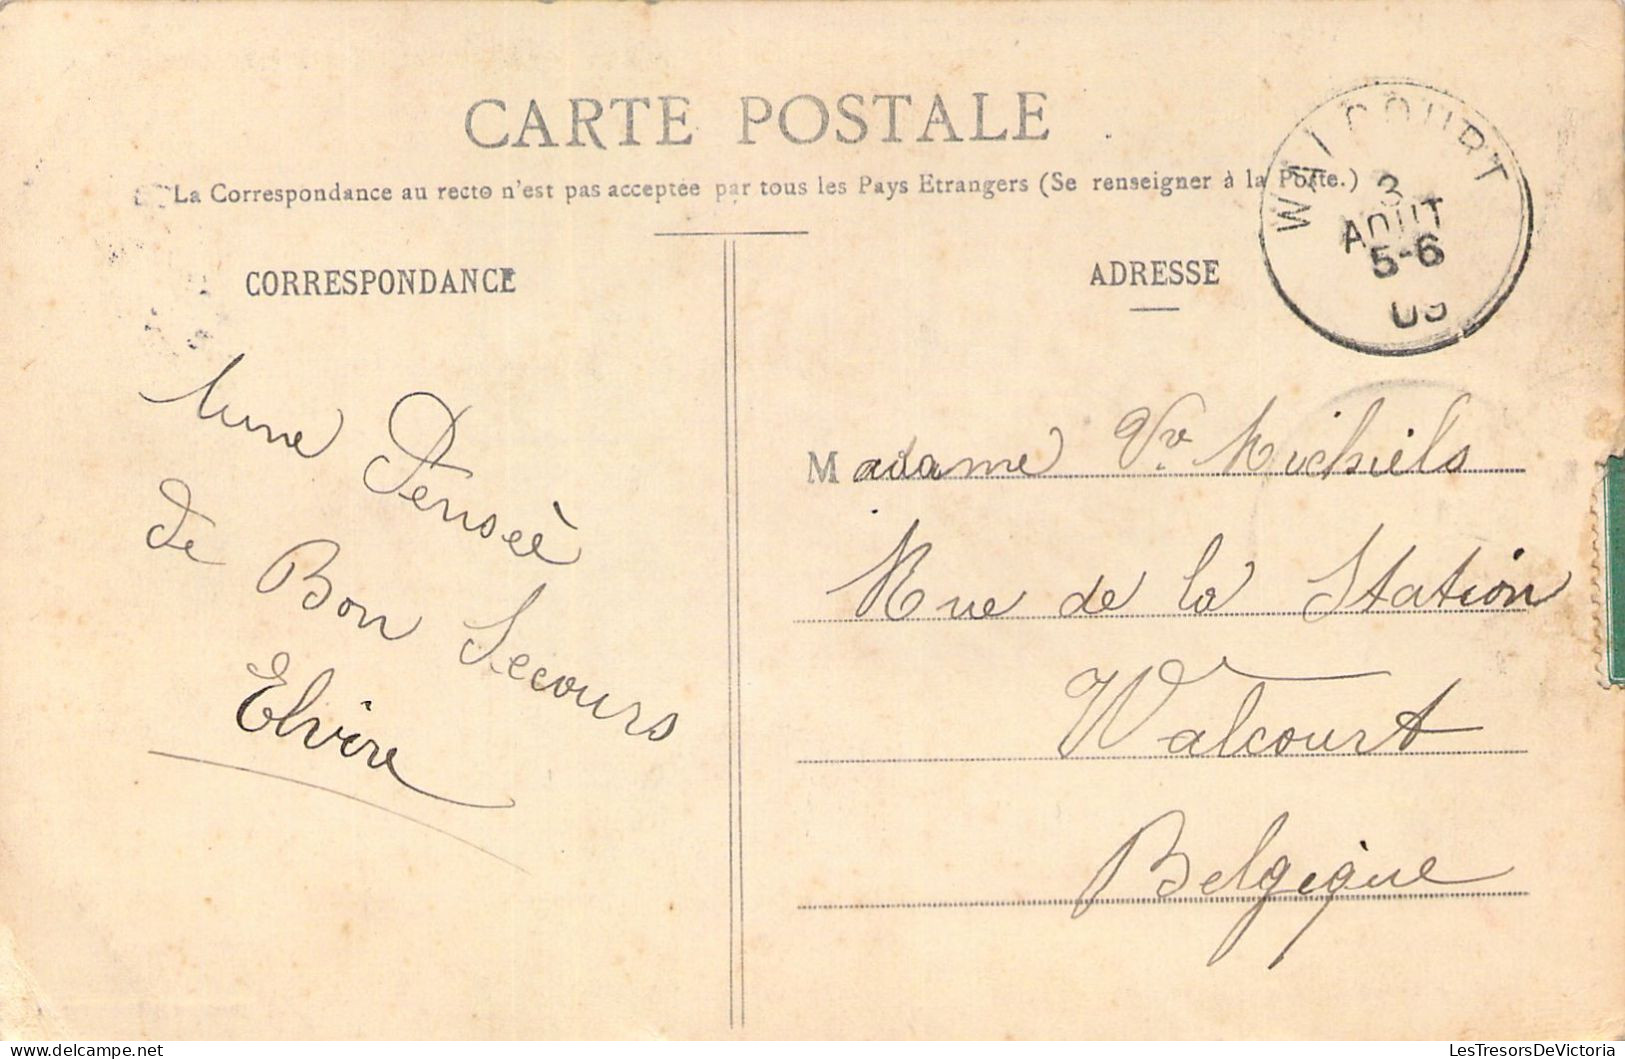 CARTE POSTALE
La Correspondance au recto n'est pas acceptée par tous les Pays Etrangers (Se renseigner à la Poste.)
WALCOURT
3
AOUT
5-6
CORRESPONDANCE
ADRESSE
Une Pensèe
de Bon Secours
Elvire
Madame Vve Michiels
Rue de la Station
Walcourt
Belgique
LesTresorsDeVictoria